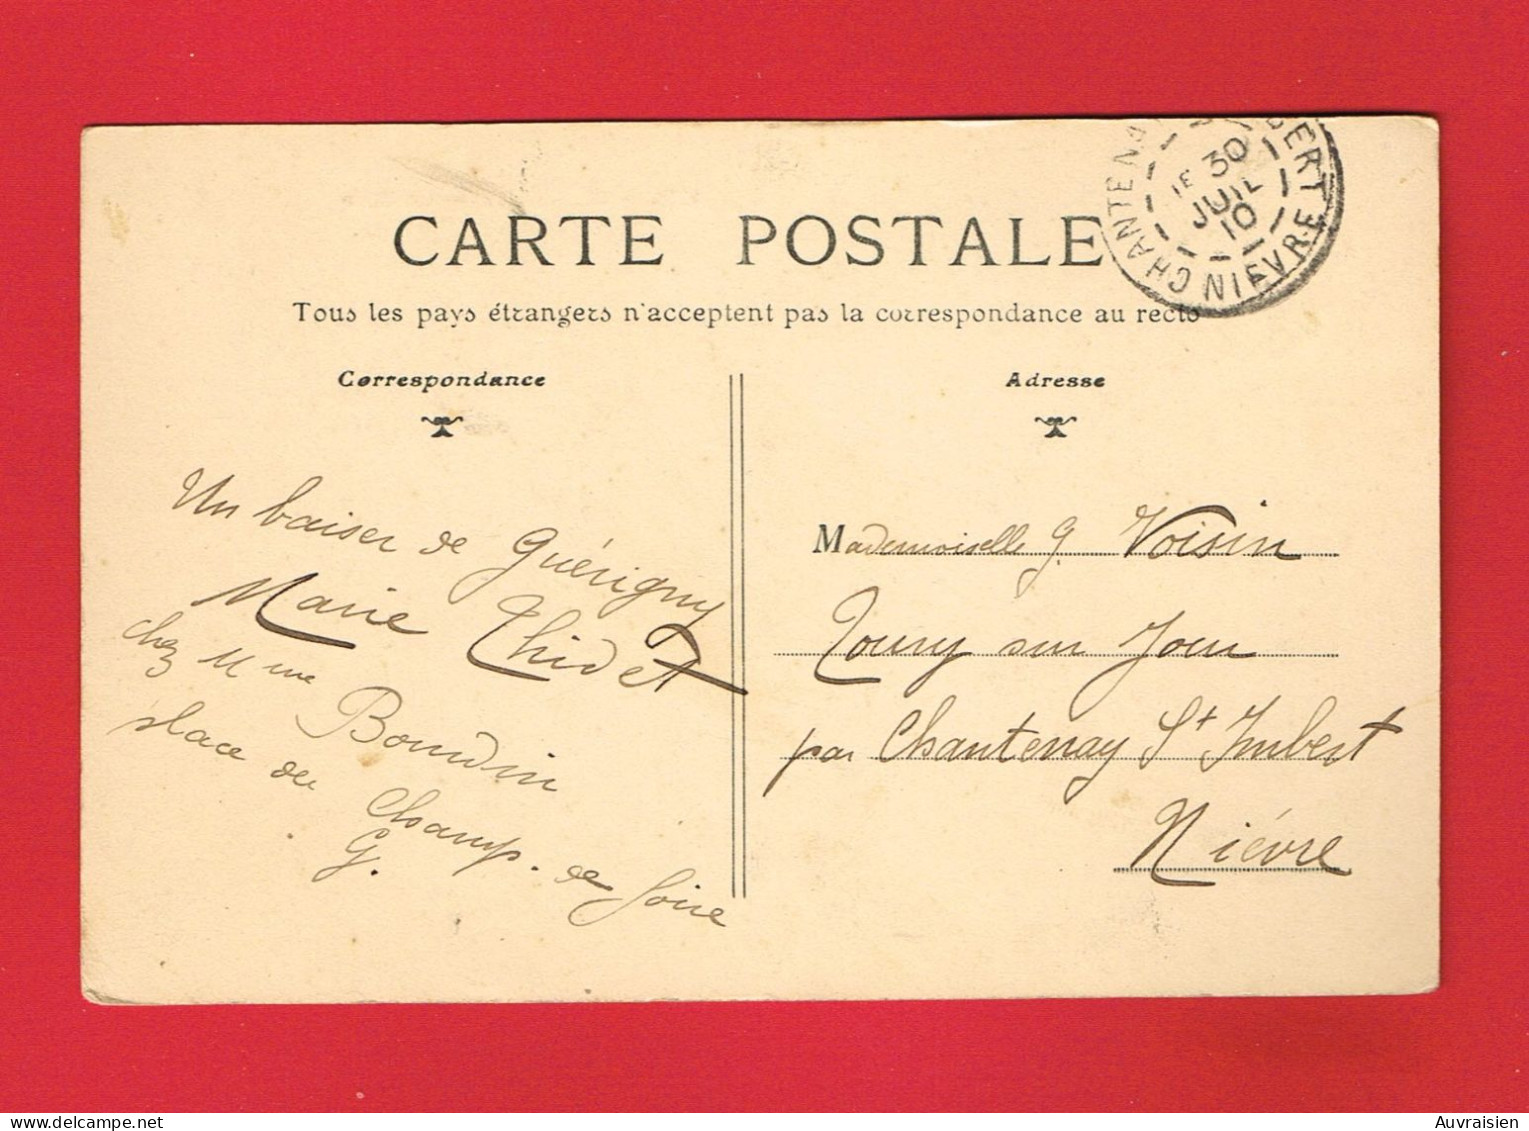 CARTE POSTALE
Tous les pays étrangers n'acceptent pas la correspondance au recto
CHANTENAY ST IMBERT
1E 30
JUIL
10
NIEVRE
Correspondance
Un baiser de Guérigny
Marie Thidet
chez Mme Bourdin
place du Champ. de foire
G.
Adresse
Mademoiselle G. Voisin
Toury sur Jour
par Chantenay St Imbert
Nièvre
Auvraisien